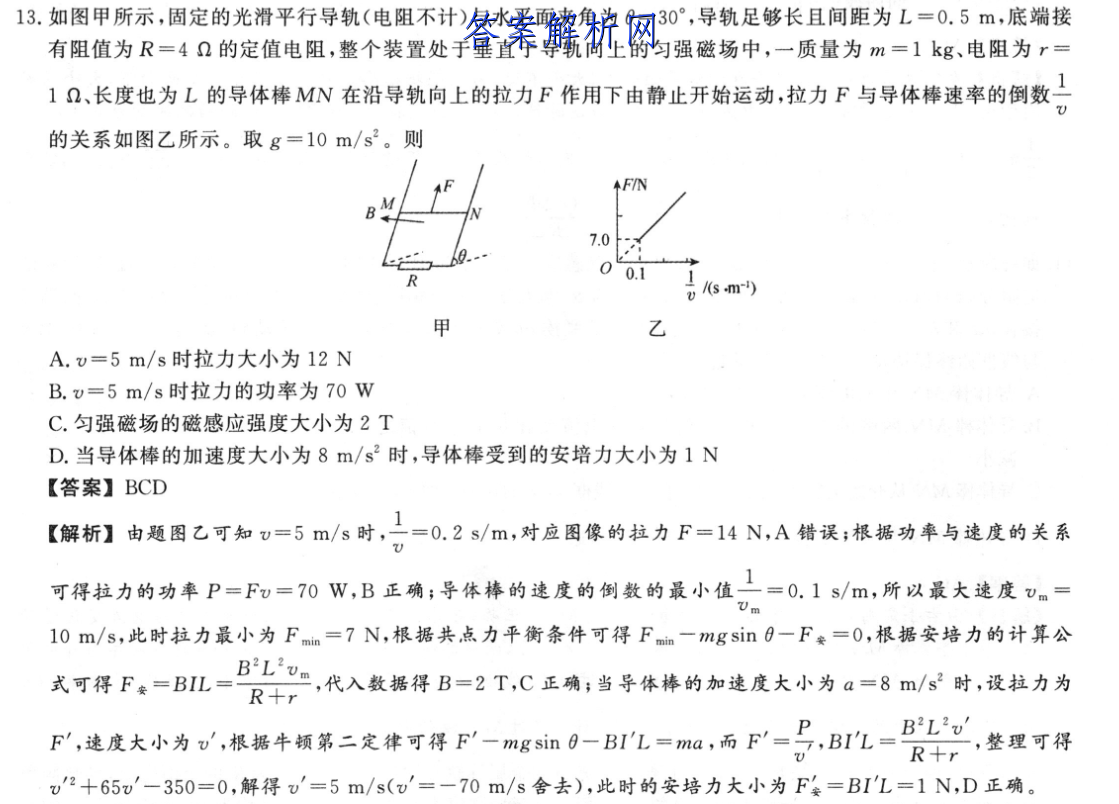 13. 如图甲所示,固定的光滑平行导轨(电阻不计)与水平面夹角为 θ=30°,导轨足够长且间距为 L=0.5 m,底端接
答案解析网
有阻值为 R=4 Ω 的定值电阻,整个装置处于垂直于导轨向上的匀强磁场中,一质量为 m=1 kg、电阻为 r=
1 Ω、长度也为 L 的导体棒 MN 在沿导轨向上的拉力 F 作用下由静止开始运动,拉力 F 与导体棒速率的倒数 1/v
的关系如图乙所示。取 g=10 m/s²。则
F
M
B
N
θ
R
甲
F/N
7.0
O
0.1
1/v /(s·m⁻¹)
乙
A. v=5 m/s 时拉力大小为 12 N
B. v=5 m/s 时拉力的功率为 70 W
C. 匀强磁场的磁感应强度大小为 2 T
D. 当导体棒的加速度大小为 8 m/s² 时,导体棒受到的安培力大小为 1 N
【答案】BCD
【解析】由题图乙可知 v=5 m/s 时,1/v=0.2 s/m,对应图像的拉力 F=14 N,A 错误;根据功率与速度的关系
可得拉力的功率 P=Fv=70 W,B 正确;导体棒的速度的倒数的最小值 1/vₘ=0.1 s/m,所以最大速度 vₘ=
10 m/s,此时拉力最小为 Fmin=7 N,根据共点力平衡条件可得 Fmin-mgsin θ-F安=0,根据安培力的计算公
式可得 F安=BIL=B²L²vₘ/(R+r),代入数据得 B=2 T,C 正确;当导体棒的加速度大小为 a=8 m/s² 时,设拉力为
F′,速度大小为 v′,根据牛顿第二定律可得 F′-mgsin θ-BI′L=ma,而 F′=P/v′,BI′L=B²L²v′/(R+r),整理可得
v′²+65v′-350=0,解得 v′=5 m/s(v′=-70 m/s 舍去),此时的安培力大小为 F′安=BI′L=1 N,D 正确。